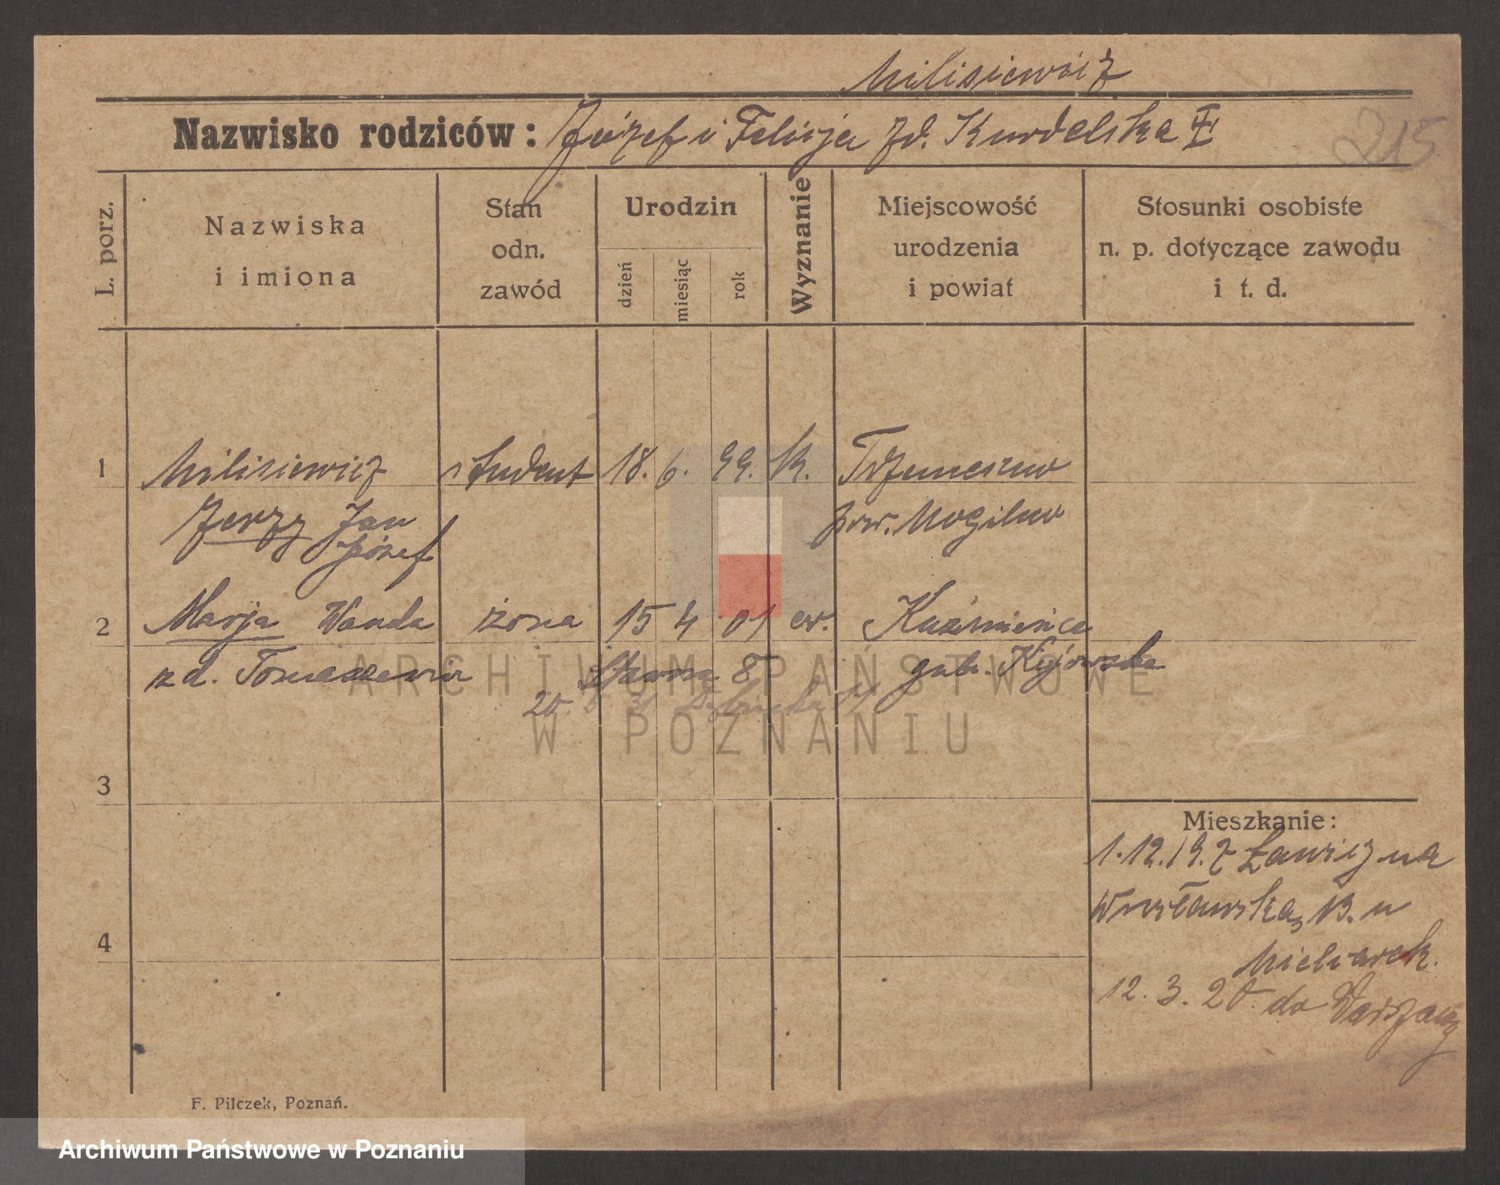 Milisiewicz
Nazwisko rodziców: Józef i Felicja zd. Kurdelska
215
L. porz.
Nazwiska
i imiona
Stan
odn.
zawód
Urodzin
dzień
miesiąc
rok
Wyznanie
Miejscowość
urodzenia
i powiat
Stosunki osobiste
n. p. dotyczące zawodu
i t. d.
1 Milisiewicz student 18. 6. 99. k. Trzemeszno
Jerzy Jan pow. Mogilno
Józef
2 Marja Wanda żona 15 4 01 ew.
zd. gub. Kijowska
20.
ARCHIWUM PAŃSTWOWE
W POZNANIU
3
Mieszkanie:
1.12.19. z Ławicy na
Wrocławska, 13. u
4
12. 3. 20 do Warszawy
F. Pilczek, Poznań.
Archiwum Państwowe w Poznaniu